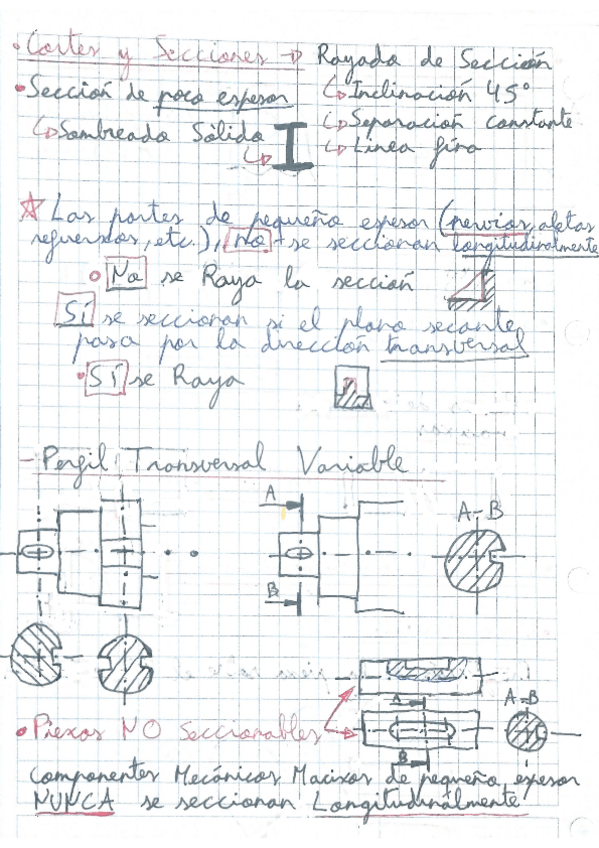 • Cortes y Secciones → Rayado de Sección
• Sección de poco espesor
↳ Inclinación 45°
↳ Sombreado Sólido
↳ Separación constante
↳ Línea fina
☆ Las partes de pequeño espesor (nervios, aletas
refuerzos, etc.), no se seccionan longitudinalmente
• No se Raya la sección
SÍ se seccionan si el plano secante
pasa por la dirección transversal
• SÍ se Raya
- Perfil Transversal Variable
A
A-B
B
A
A-B
B
• Piezas NO Seccionables
Componentes Mecánicos Macizos de pequeño espesor
NUNCA se seccionan Longitudinalmente